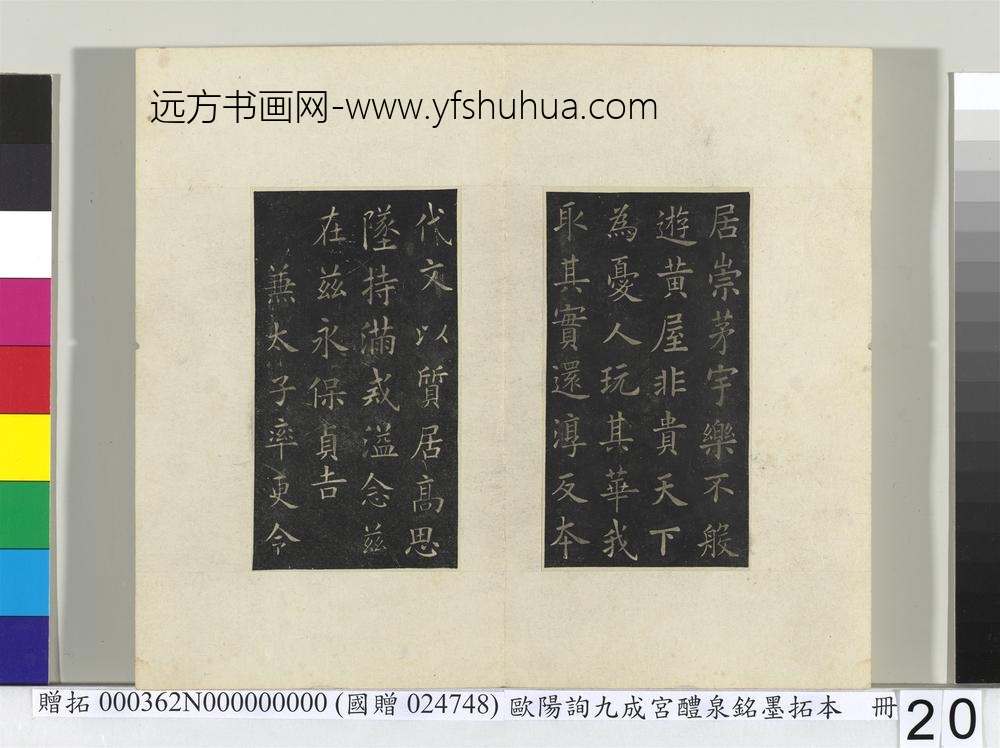 远方书画网-www.yfshuhua.com
居崇茅宇樂不般
遊黃屋非貴天下
為憂人玩其華我
取其實還淳反本
代文以質居高思
墜持滿戒溢念茲
在茲永保貞吉
兼太子率更令
贈拓 000362N000000000 (國贈 024748) 歐陽詢九成宮醴泉銘墨拓本 冊
20